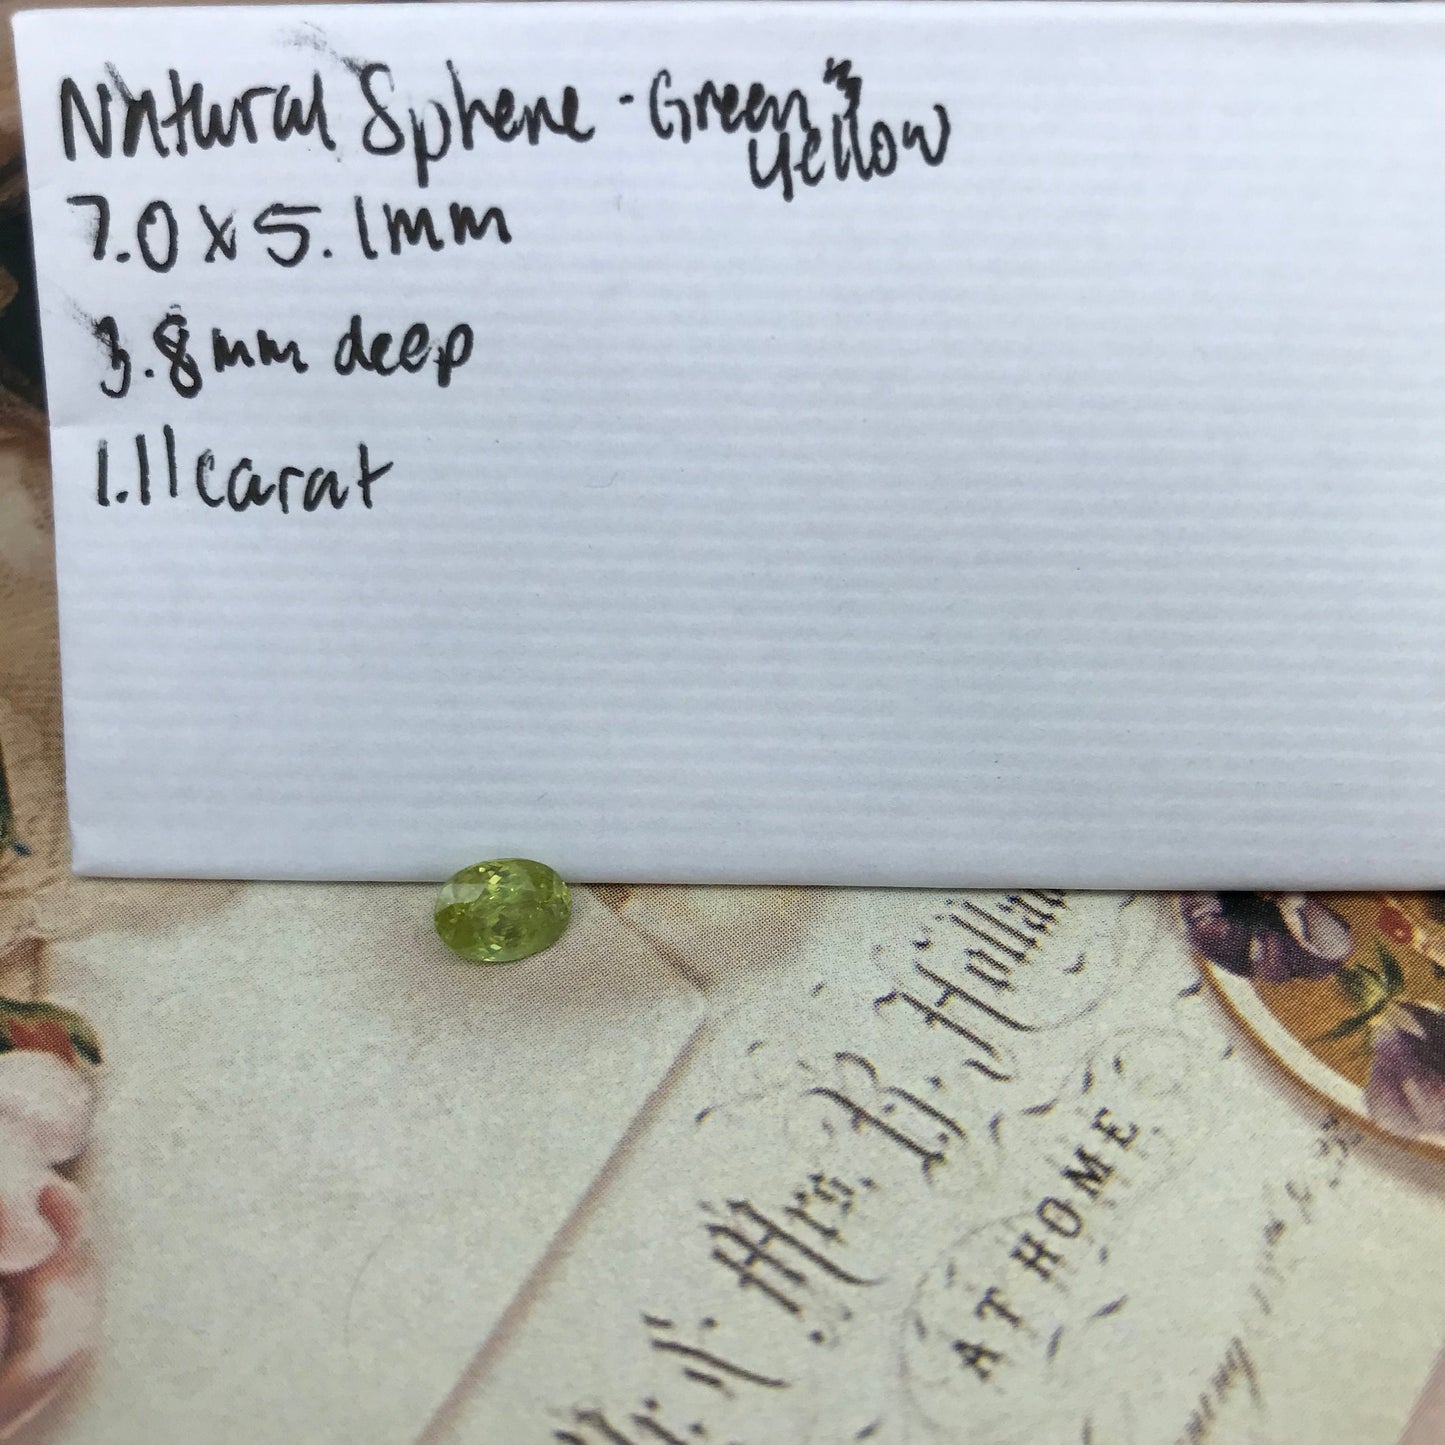 Natural Sphene - Green &
Yellow
7.0 x 5.1mm
3.8mm deep
1.11 carat
Mrs. B. Hollan
AT HOME